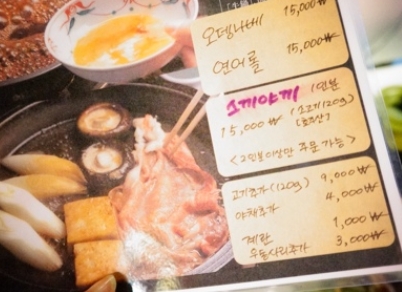 오뎅나베 15,000₩
연어롤 15,000₩
스끼야끼 1인분
15,000₩ (소고기120g)
(호주산)
<2인분이상만 주문 가능>
고기추가(120g) 9,000₩
야채추가 4,000₩
계란 1,000₩
우동사리추가 3,000₩